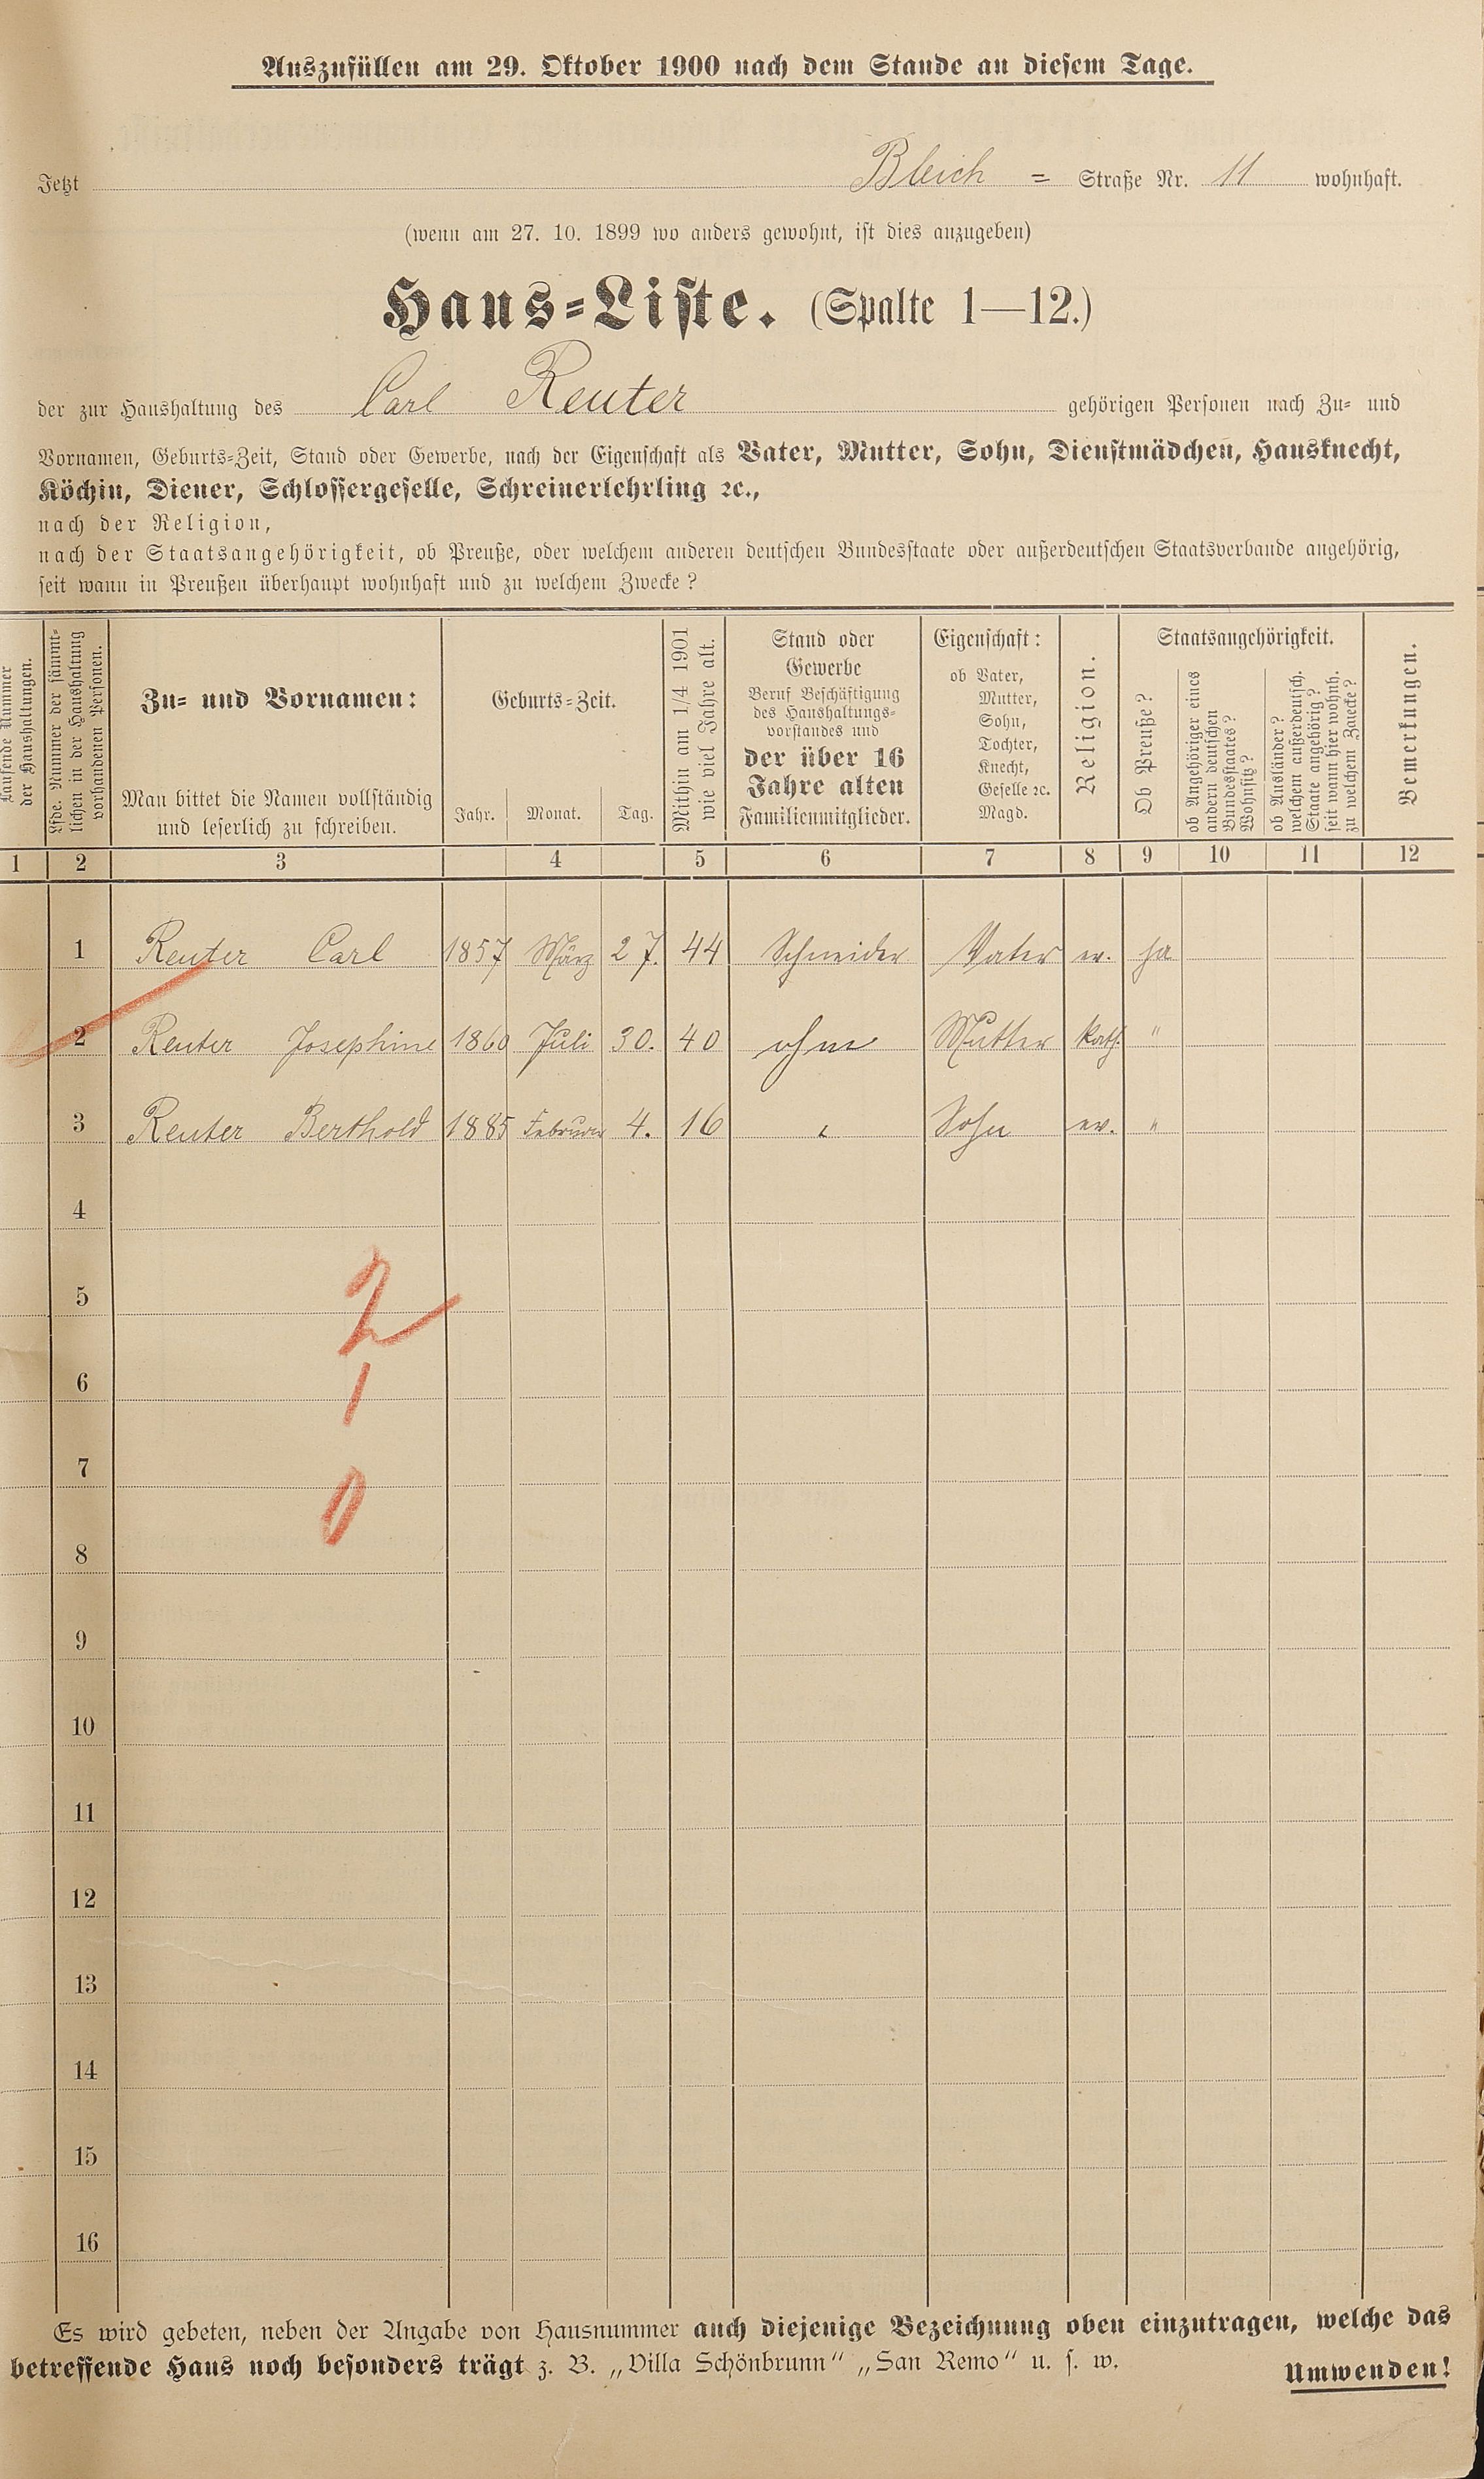 Auszufüllen am 29. Oktober 1900 nach dem Stande an diesem Tage.
Jetzt Bleich = Straße Nr. 11 wohnhaft.
(wenn am 27. 10. 1899 wo anders gewohnt, ist dies anzugeben)
Haus=Liste. (Spalte 1—12.)
der zur Haushaltung des Carl Reuter gehörigen Personen nach Zu= und
Vornamen, Geburts=Zeit, Stand oder Gewerbe, nach der Eigenschaft als Vater, Mutter, Sohn, Dienstmädchen, Hausknecht,
Köchin, Diener, Schlossergeselle, Schreinerlehrling ꝛc.,
nach der Religion,
nach der Staatsangehörigkeit, ob Preuße, oder welchem anderen deutschen Bundesstaate oder außerdeutschen Staatsverbande angehörig,
seit wann in Preußen überhaupt wohnhaft und zu welchem Zwecke?
Laufende Nummer
der Haushaltungen.
Lfde. Nummer der sämmt=
lichen in der Haushaltung
vorhandenen Personen.
Zu= und Vornamen:
Man bittet die Namen vollständig
und leserlich zu schreiben.
Geburts=Zeit.
Jahr. Monat. Tag.
Mithin am 1/4 1901
wie viel Jahre alt.
Stand oder
Gewerbe
Beruf Beschäftigung
des Haushaltungs=
vorstandes und
der über 16
Jahre alten
Familienmitglieder.
Eigenschaft:
ob Vater,
Mutter,
Sohn,
Tochter,
Knecht,
Geselle ꝛc.
Magd.
Religion.
Staatsangehörigkeit.
Ob Preuße?
ob Angehöriger eines
andern deutschen
Bundesstaates?
Wohnsitz?
ob Ausländer?
welchem außerdeutsch.
Staate angehörig?
seit wann hier wohnh.
zu welchem Zwecke?
Bemerkungen.
1 2 3 4 5 6 7 8 9 10 11 12
1 Reuter Carl 1857 März 27. 44 Schneider Vater ev. ja
2 Reuter Josephine 1860 Juli 30. 40 ohne Mutter kath. "
3 Reuter Berthold 1885 Februar 4. 16 " Sohn ev. "
4
5
2
6
1
7
0
8
9
10
11
12
13
14
15
16
Es wird gebeten, neben der Angabe von Hausnummer auch diejenige Bezeichnung oben einzutragen, welche das
betreffende Haus noch besonders trägt z. B. „Villa Schönbrunn" „San Remo" u. s. w.
Umwenden!